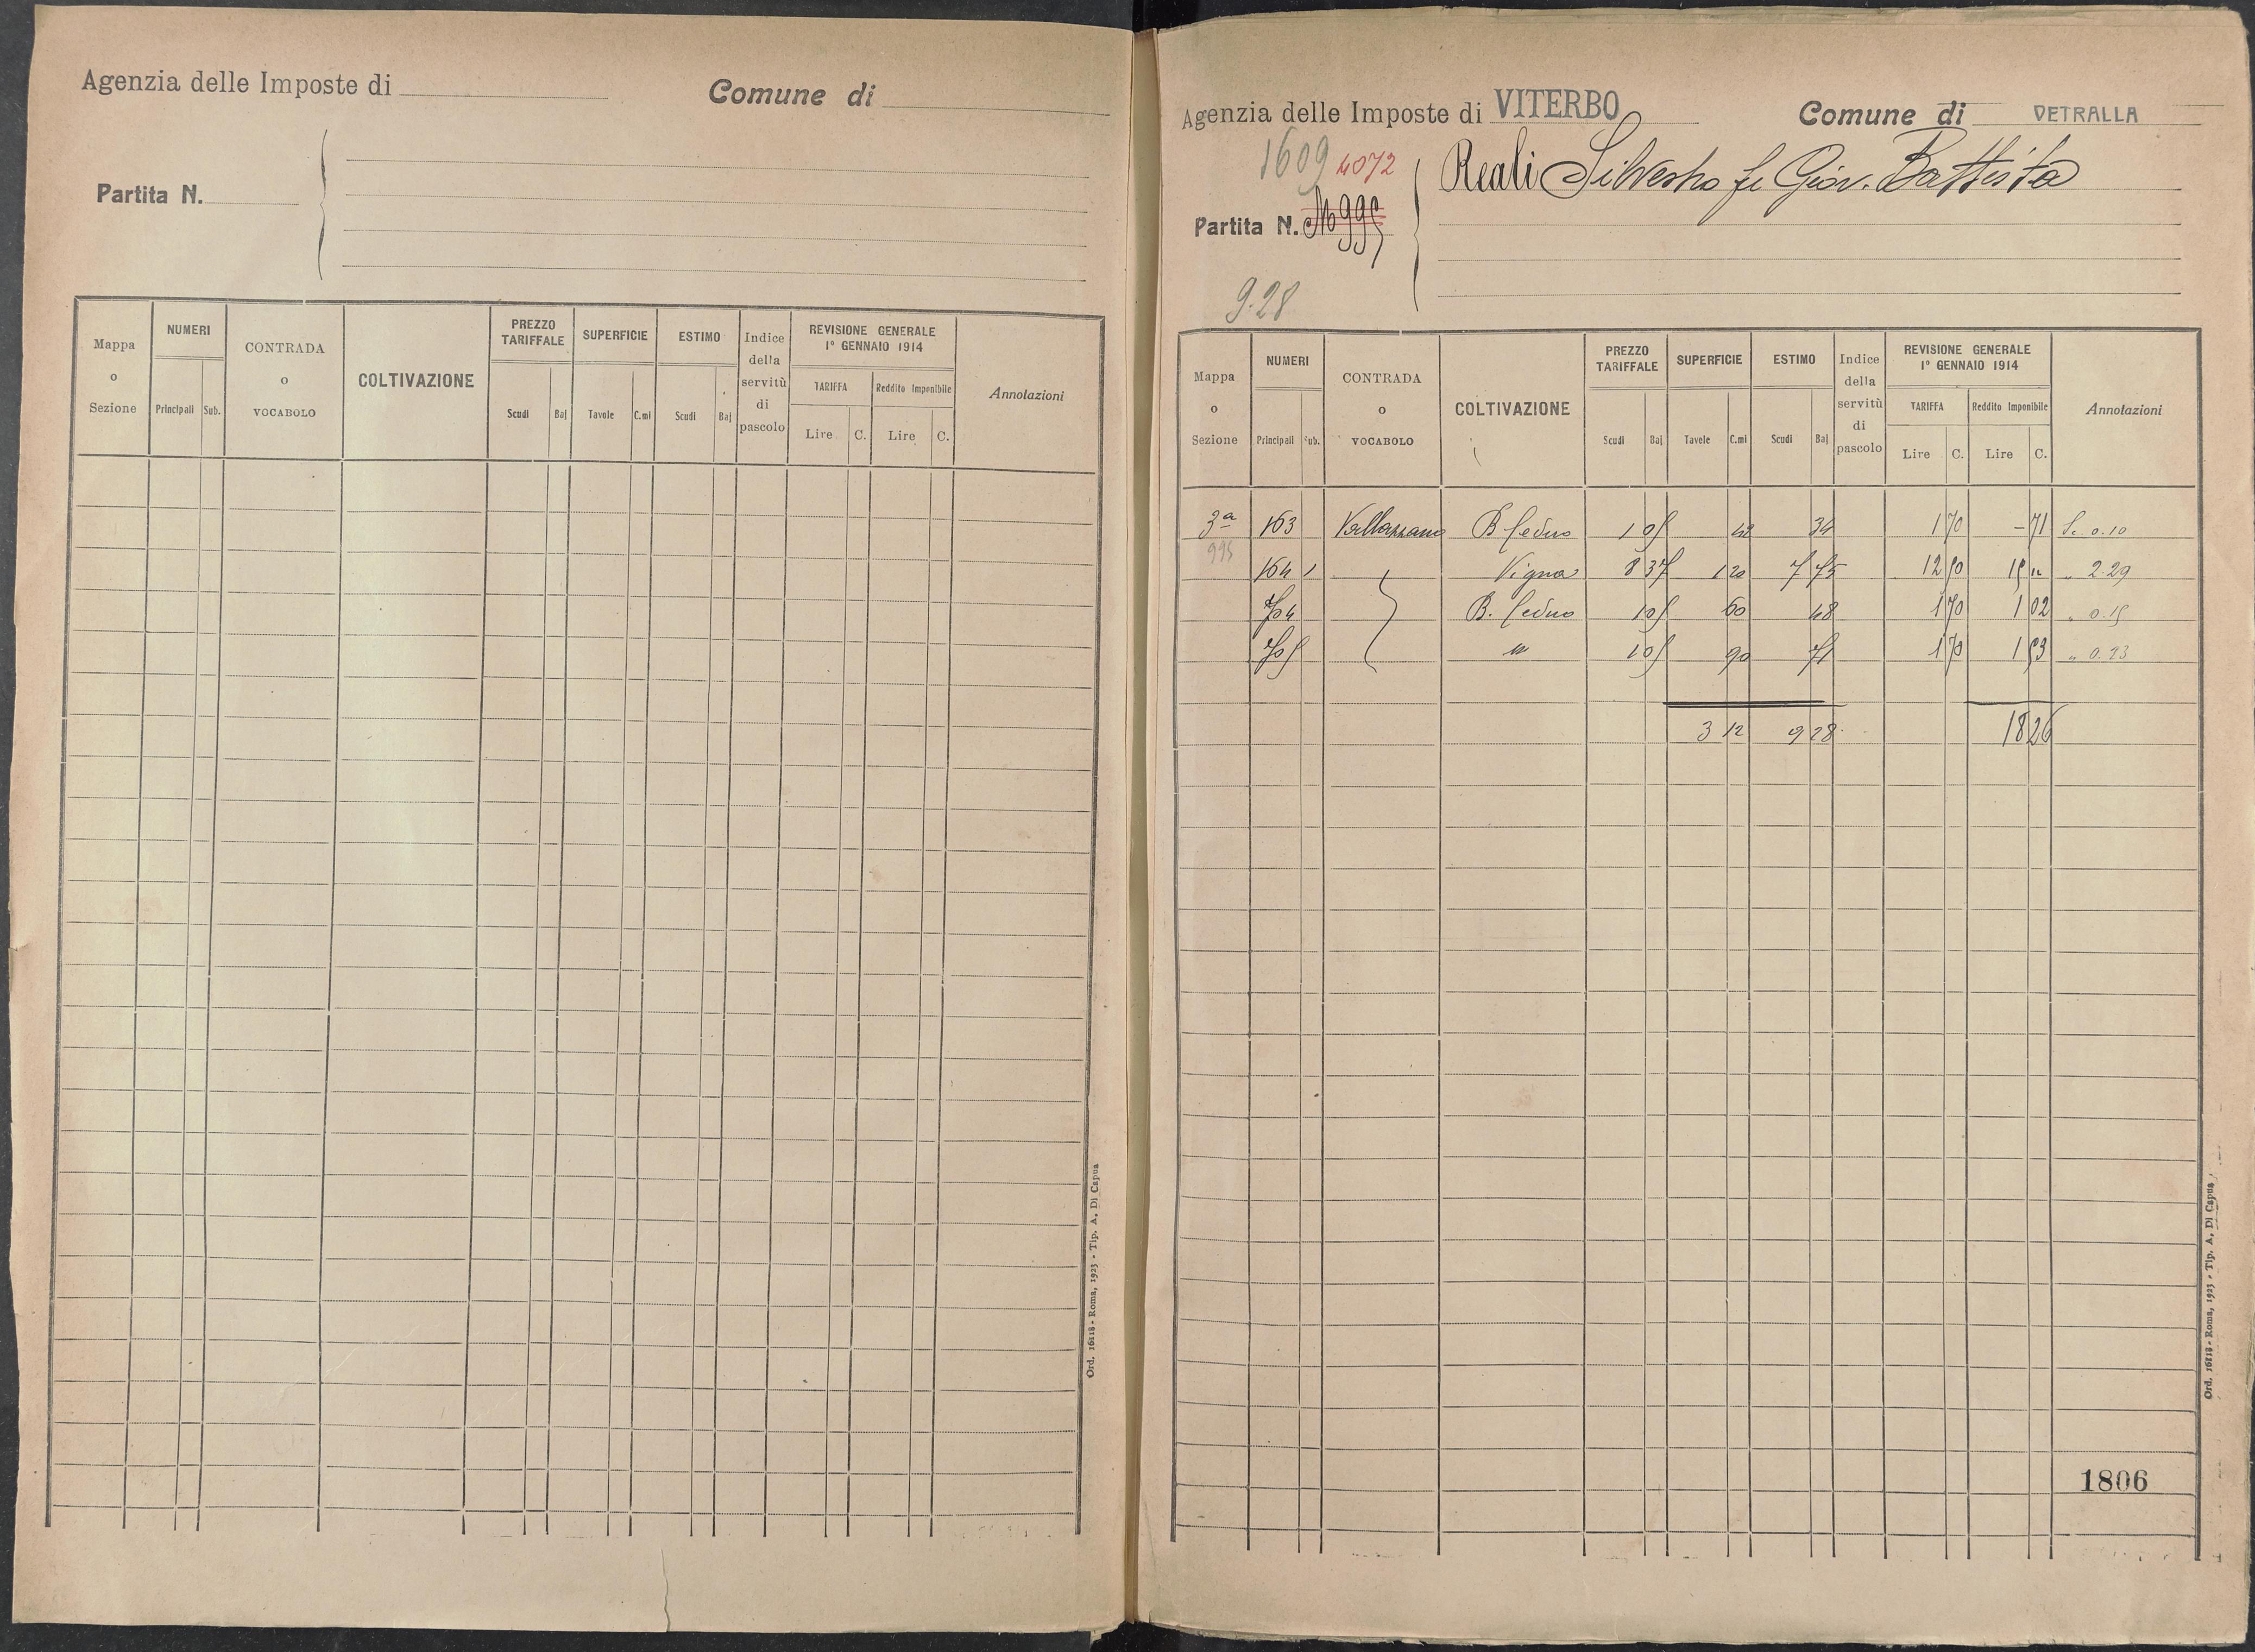 Agenzia delle Imposte di
Comune di
Partita N.
Mappa o Sezione
NUMERI
Principali
Sub.
CONTRADA o VOCABOLO
COLTIVAZIONE
PREZZO TARIFFALE
Scudi
Baj
SUPERFICIE
Tavole
C.mi
ESTIMO
Scudi
Baj
Indice della servitù di pascolo
REVISIONE GENERALE
1° GENNAIO 1914
TARIFFA
Reddito Imponibile
Lire
C.
Lire
C.
Annotazioni
Ord. 16118 - Roma, 1923 - Tip. A. Di Capua
Agenzia delle Imposte di VITERBO
Comune di VETRALLA
1609 4072
Reali Silvestro fu Giov. Battista
Partita N.
9.28
Mappa o Sezione
NUMERI
Principali
Sub.
CONTRADA o VOCABOLO
COLTIVAZIONE
PREZZO TARIFFALE
Scudi
Baj
SUPERFICIE
Tavole
C.mi
ESTIMO
Scudi
Baj
Indice della servitù di pascolo
REVISIONE GENERALE
1° GENNAIO 1914
TARIFFA
Reddito Imponibile
Lire
C.
Lire
C.
Annotazioni
3a 163 B Ceduo 1 05 42 34 1 70 - 71 0.10
995
164 1 Vigna 8 37 1 20 7 75 12 50 15 2.29
704 B. Ceduo 1 05 60 48 1 70 1 02 " 0.15
705 " 1 05 90 71 1 70 1 53 " 0.23
3 12 9 28 18 26
1806
Ord. 16118 - Roma, 1923 - Tip. A. Di Capua